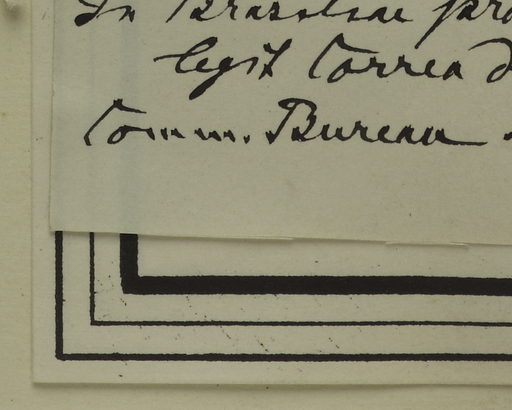 In Brasiliae pro
legit Correa d
Comm. Bureau